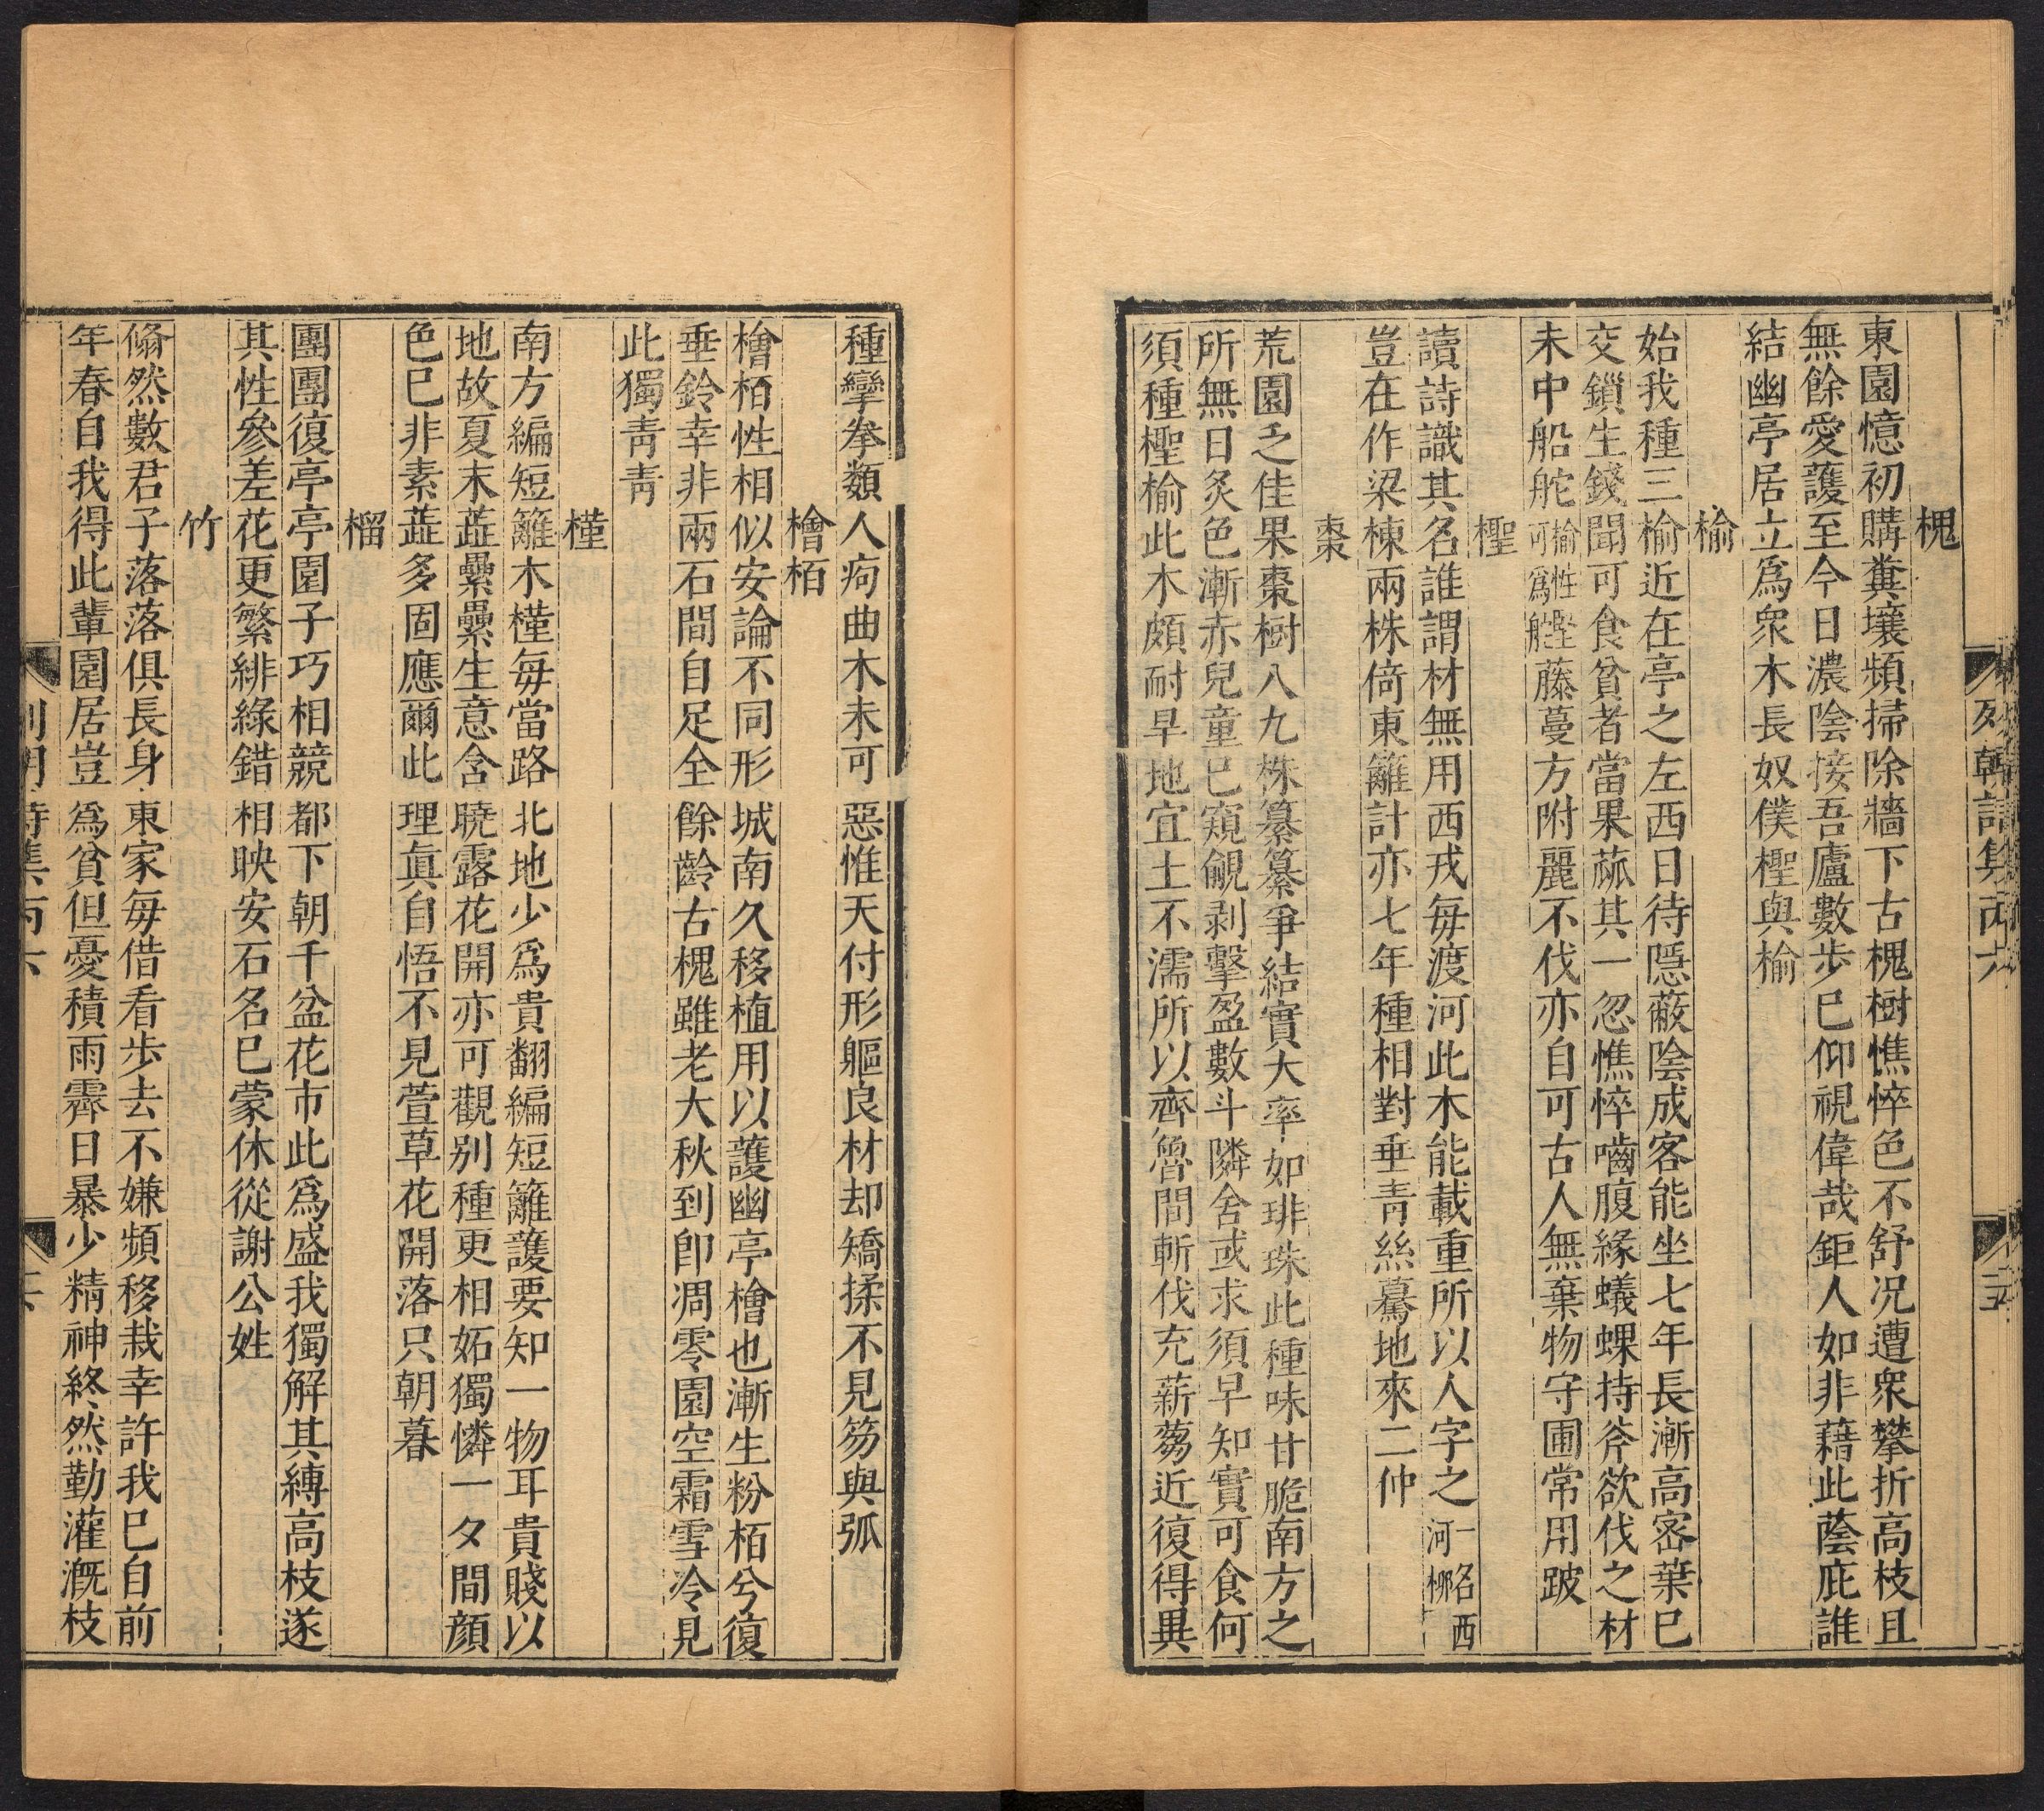 列朝詩集丙六
五
槐
東園憶初購糞壤頻掃除牆下古槐樹憔悴色不舒况遭衆攀折高枝且
無餘愛護至今日濃陰接吾廬數步已仰視偉哉鉅人如非藉此蔭庇誰
結幽亭居立爲衆木長奴僕檉與榆
榆
始我種三榆近在亭之左西日待隱蔽陰成客能坐七年長漸高密葉已
交鎖生錢聞可食貧者當果蓏其一忽憔悴嚙腹緣蟻蜾持斧欲伐之材
未中船舵榆性堅可爲舵藤蔓方附麗不伐亦自可古人無棄物守圃常用跛
檉
讀詩識其名誰謂材無用西戎每渡河此木能載重所以人字之一名西河柳
豈在作梁棟兩株倚東籬計亦七年種相對垂青絲驀地來二仲
棗
荒園之佳果棗樹八九株纂纂爭結實大率如琲珠此種味甘脆南方之
所無日炙色漸赤兒童已窺覦剥擊盈數斗隣舍或求須早知實可食何
須種檉榆此木頗耐旱地宜土不濡所以齊魯間斬伐充薪蒭近復得異
種攣拳類人疴曲木未可惡惟天付形軀良材却矯揉不見笏與弧
檜栢
檜栢性相似安論不同形城南久移植用以護幽亭檜也漸生粉栢兮復
垂鈴幸非兩石間自足全餘齡古槐雖老大秋到卽凋零園空霜雪冷見
此獨青青
槿
南方編短籬木槿每當路北地少爲貴翻編短籬護要知一物耳貴賤以
地故夏末蕋纍纍生意含曉露花開亦可觀别種更相妬獨憐一夕間顔
色已非素蕋多固應爾此理眞自悟不見萱草花開落只朝暮
榴
團團復亭亭園子巧相競都下朝千盆花市此爲盛我獨解其縛高枝遂
其性參差花更繁緋緑錯相映安石名已蒙休從謝公姓
竹
翛然數君子落落俱長身東家每借看步去不嫌頻移栽幸許我已自前
年春自我得此輩園居豈爲貧但憂積雨霽日暴少精神終然勤灌漑枝
列朝詩集丙六